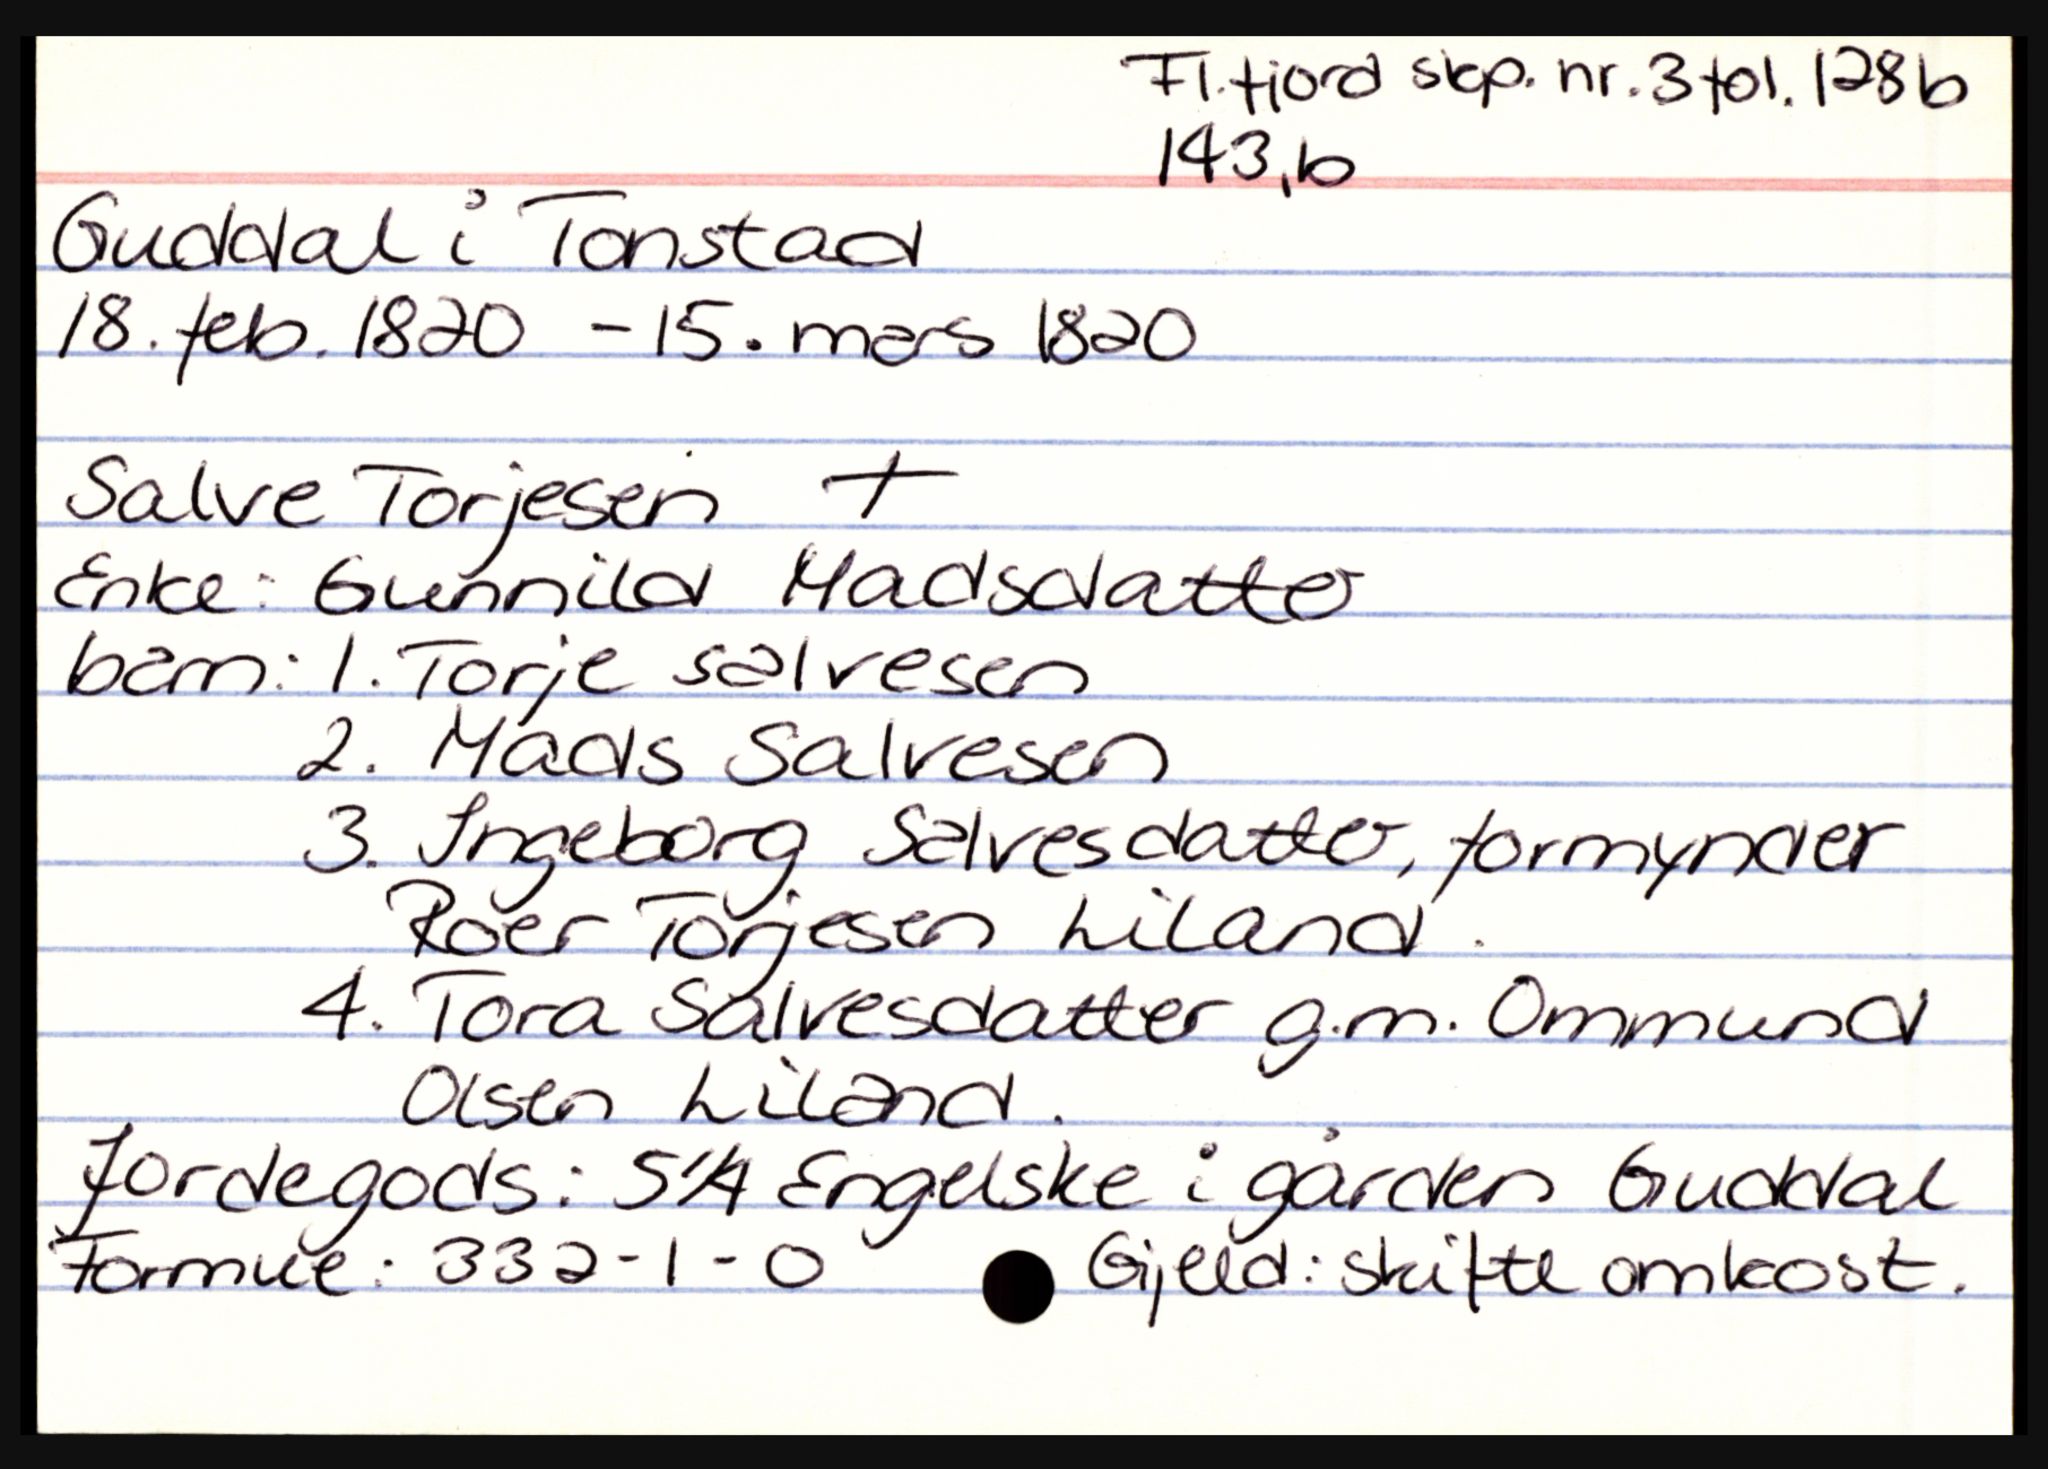 Fl.fjord skp. nr. 3 fol. 128b
143,b
Guddal i Tonstad
18. feb. 1820 - 15. mars 1820
Salve Torjesen +
Enke: Gunnild Madsdatter
barn: 1. Torje salvesen
2. Mads Salvesen
3. Ingeborg Salvesdatter, formynder
Roer Torjesen Liland.
4. Tora Salvesdatter g.m. Ommund
Olsen Liland.
Jordegods: 5 1/4 Engelske i gården Guddal
Formue: 332-1-0 Gjeld: skifte omkost.